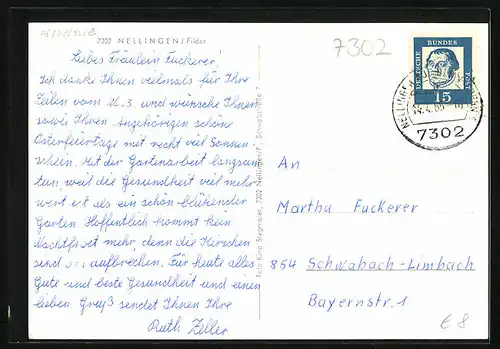 7302 NELLINGEN/Filder
7302
Liebes Fräulein Fuckerer!
Ich danke Ihnen vielmals für Ihre
Zeilen vom 26.3. und wünsche Ihnen
sowie Ihren Angehörigen schöne
Osterfeiertage mit recht viel Sonnen-
schein. Mit der Gartenarbeit langsam
tun, weil die Gesundheit viel mehr
wert ist als ein schön blühender
Garten. Hoffentlich kommt kein
Nachtfrost mehr, denn die Kirschen
sind aufbrechen. Für heute alles
Gute und beste Gesundheit und einen
lieben Gruß sendet Ihnen Ihre
Ruth Zeller
Foto Kino Stegmaier, 7302 Nellingen/F.
DEUTSCHE BUNDESPOST
15
NELLINGEN
7302
An
Martha Fuckerer
854 Schwabach-Limbach
Bayernstr. 1
€ 8